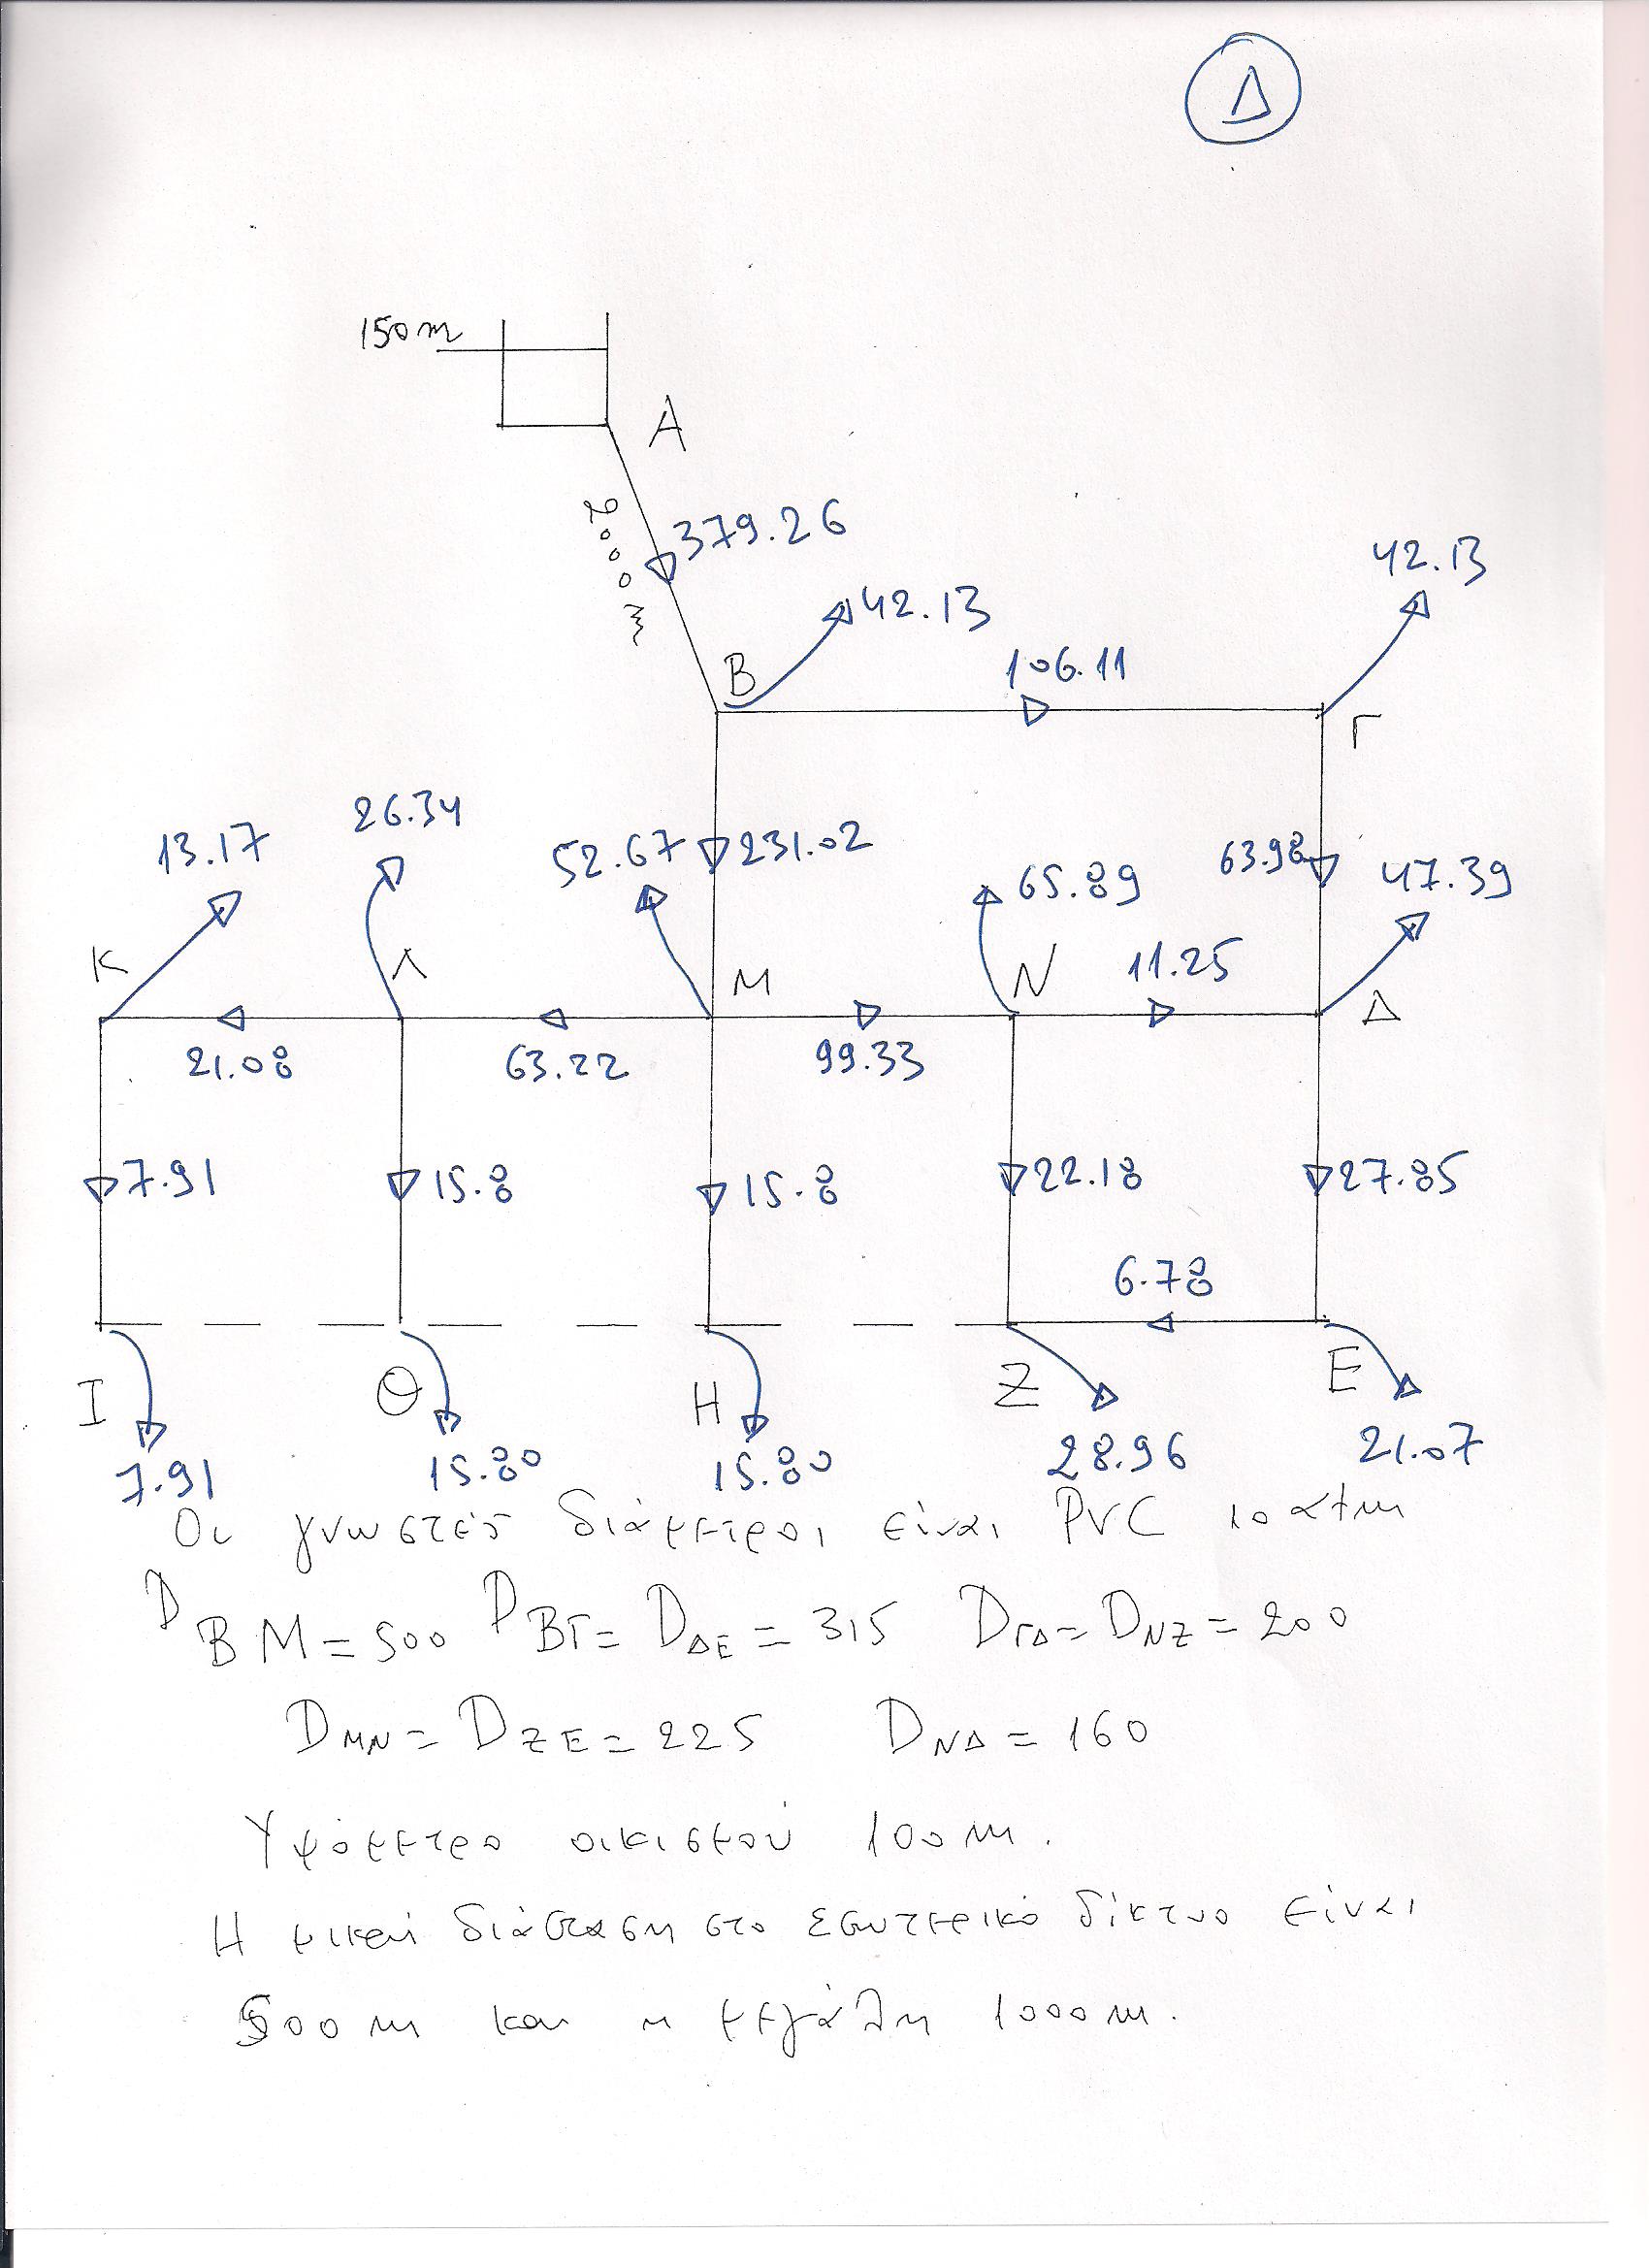 Δ
150m
A
2000m
379.26
42.13
42.13
B
106.11
Γ
26.34
13.17
52.67
231.02
63.98
47.39
65.89
K
Λ
M
N
11.25
Δ
21.08
63.22
99.33
7.91
15.8
15.8
22.18
27.85
6.78
I
Θ
H
Z
E
7.91
15.80
15.80
28.96
21.07
Οι γνωστές διάμετροι είναι PVC 10 atm
D BM = 500 D BΓ = D ΔE = 315 D ΓΔ = D NZ = 200
D MN = D ZE = 225 D NΔ = 160
Υψόμετρο οικισμού 100m.
Η μικρή διάσταση στο εσωτερικό δίκτυο είναι
500m και η μεγάλη 1000m.